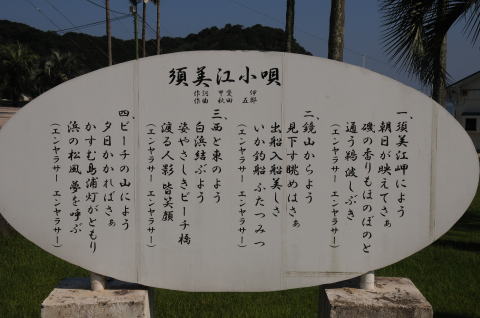 須美江小唄
作詞 甲斐 伊
作曲 秋田 五郎
一、須美江岬によう
朝日が映えてさぁ
磯の香りもほのぼのと
通う鵜波しぶき
(エンヤラサー エンヤラサー)
二、鏡山からよう
見下す眺めはさぁ
出船入船美しさ
いか釣船ふたつみつ
(エンヤラサー エンヤラサー)
三、西と東のよう
白浜結ぶよう
姿やさしきビーチ橋
渡る人影 皆笑顔
(エンヤラサー エンヤラサー)
四、ビーチの山によう
夕日かかればさぁ
かすむ島浦灯がともり
浜の松風 夢を呼ぶ
(エンヤラサー エンヤラサー)